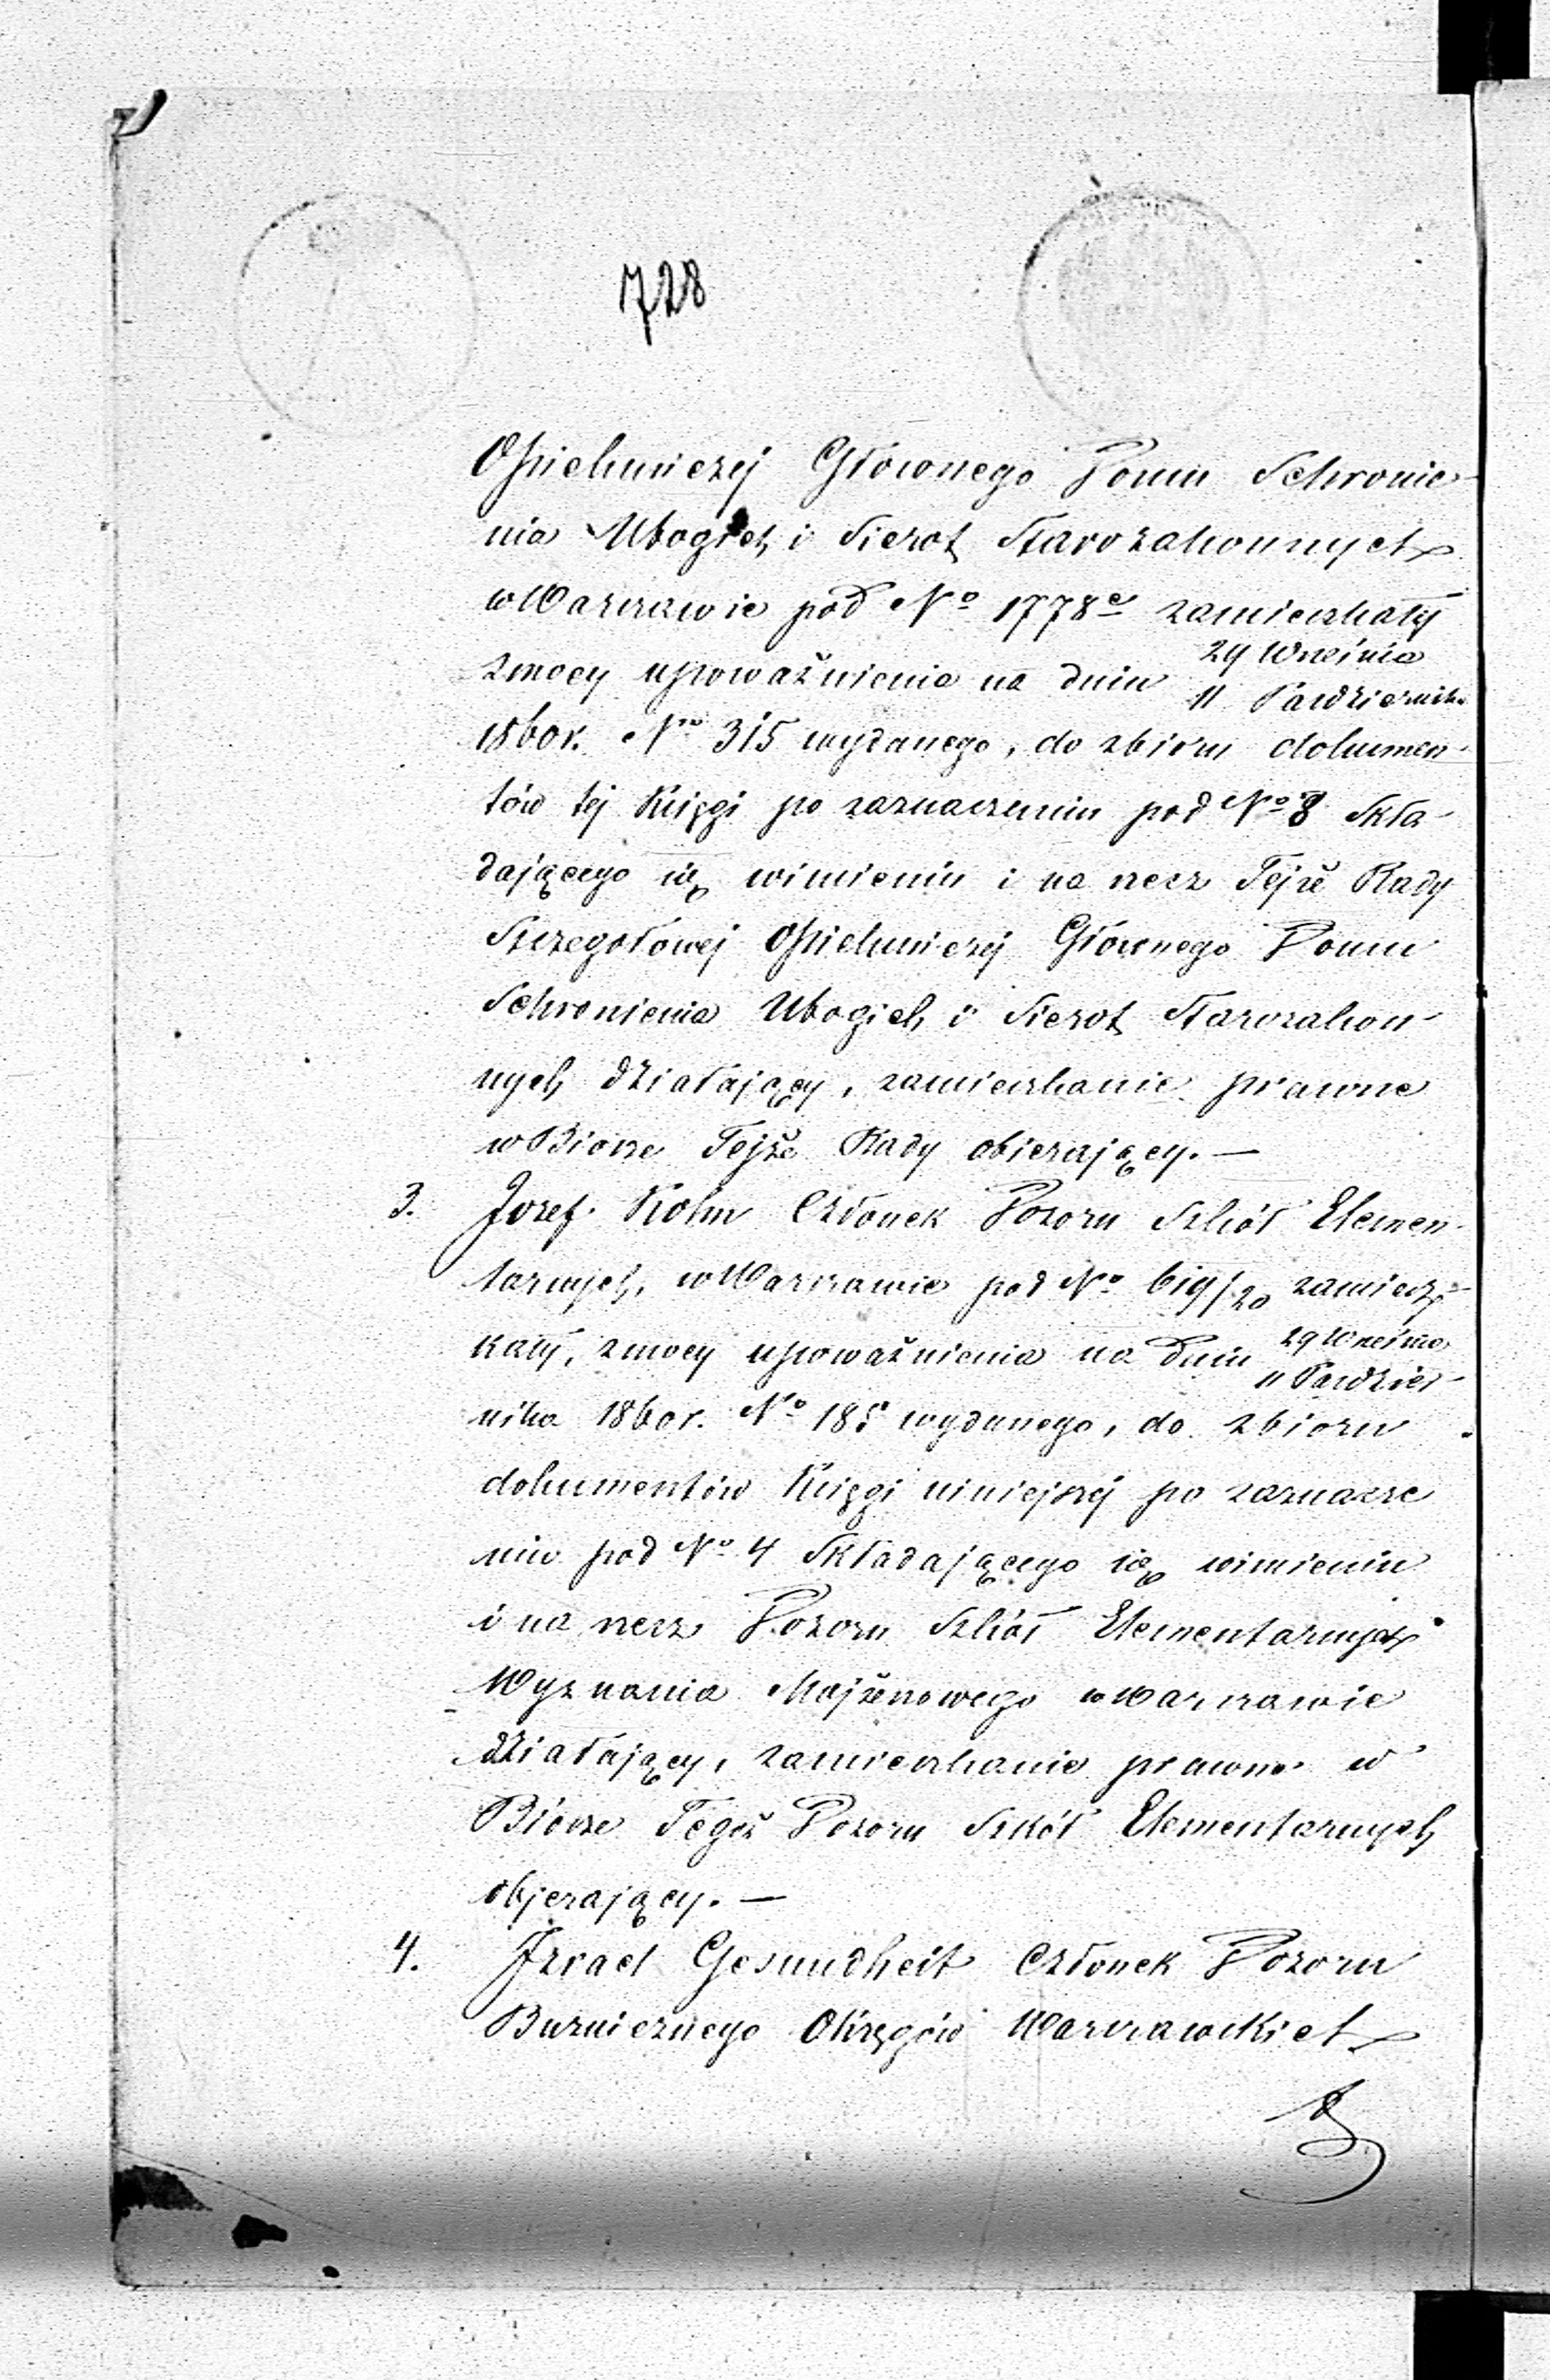 728
Opiekuńczej Głównego Domu Schronie-
nia Ubogich i Sierot Starozakonnych
w Warszawie pod No 1778e zamieszkały
z mocy upoważnienia na dniu 29 Września
11 Października
1860 r. No 315 wydanego, do zbioru dokumen-
tów tej Księgi po zaznaczeniu pod No 3 Skła-
dającego się w imieniu i na rzecz Tejże Rady
Szczegołowej Opiekuńczej Głównego Domu
Schronienia Ubogich i Sierot Starozakon-
nych działający, zamieszkanie prawne
w Biórze Tejże Rady obierający. —
3. Jozef Kohn Członek Dozoru Szkół Elemen-
tarnych, w Warszawie pod No 619/20 zamiesz-
kały, z mocy upoważnienia na dniu 29 Września
11 Paździer-
nika 1860 r. No 185 wydanego, do zbioru
dokumentów Księgi niniejszej po zaznacze
niu pod No 4 Składającego się w imieniu
i na rzecz Dozoru Szkół Elementarnych
Wyznania Mojżeszowego w Warszawie
działający, zamieszkanie prawne w
Biórze Tegoż Dozoru Szkół Elementarnych
objerający. —
4. Izrael Gesundheit Członek Dozoru
Bużniczego Okręgów Warszawskich